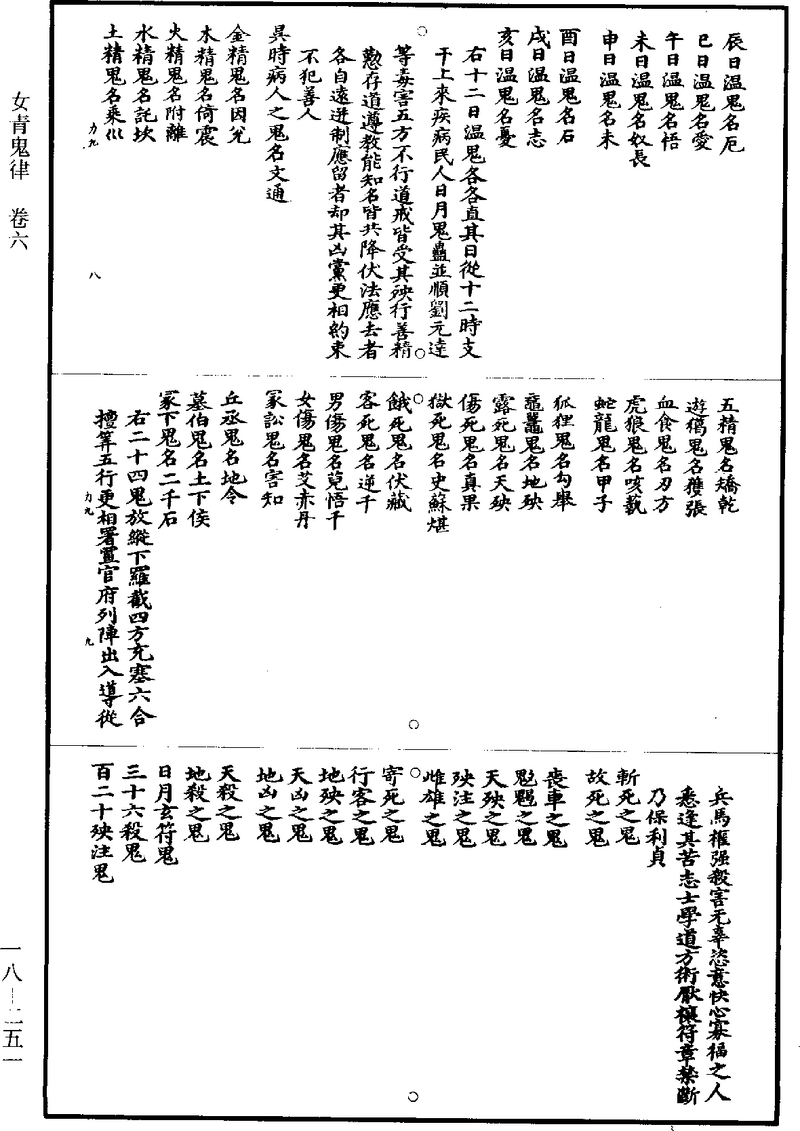 女青鬼律 卷六
辰日温鬼名厄
巳日温鬼名愛
午日温鬼名悟
未日温鬼名奴長
申日温鬼名未
酉日温鬼名石
戌日温鬼名志
亥日温鬼名憂
右十二日温鬼各各直其日從十二時支
干上來疾病民人日月鬼蠱並順劉元達
等毒害五方不行道戒皆受其殃行善精
懃存道遵教能知名皆共降伏法應去者
各自遠迸制應留者却其凶黨更相約束
不犯善人
異時病人之鬼名文通
金精鬼名因兊
木精鬼名倚震
火精鬼名附離
水精鬼名託坎
土精鬼名乘巛
力九
八
五精鬼名矯乾
遊𤞞鬼名獲張
血食鬼名刃方
虎狼鬼名咳
蛇龍鬼名甲子
狐狸鬼名勾舉
鼁鼉鬼名地殃
露死鬼名天殃
傷死鬼名真果
獄死鬼名史蘇煁
餓死鬼名伏藏
客死鬼名逆千
男傷鬼名莧悟千
女傷鬼名艾赤丹
冢訟鬼名害知
丘丞鬼名地令
墓伯鬼名土下侯
冢下鬼名二千石
右二十四鬼放縱下羅截四方充塞六合
擅筭五行更相署置官府列陣出入導從
力九
九
兵馬權强殺害无辜恣意快心寡福之人
悉逢其苦志士學道方術厭禳符章禁斷
乃保利貞
斬死之鬼
故死之鬼
喪車之鬼
魁魁之鬼
天殃之鬼
殃注之鬼
雌雄之鬼
寄死之鬼
行客之鬼
地殃之鬼
天凶之鬼
地凶之鬼
天殺之鬼
地殺之鬼
日月玄符鬼
三十六殺鬼
百二十殃注鬼
一八—二五一